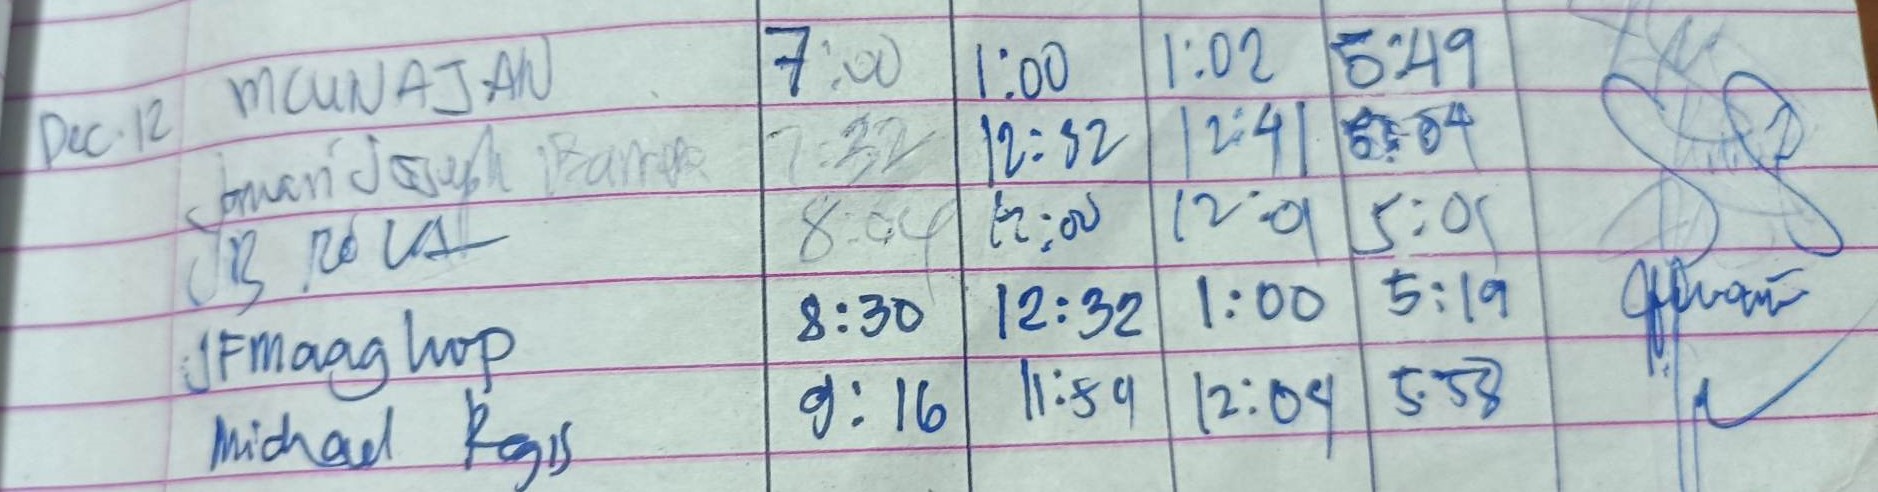 Dec. 12 MCUNAJAN 7:00 1:00 1:02 5:49
Joseph 7:32 12:32 12:41 5:04
JB 8:04 12:00 12:01 5:01
JFmaaghop 8:30 12:32 1:00 5:19
Michael Regis 9:16 11:59 12:04 5:58